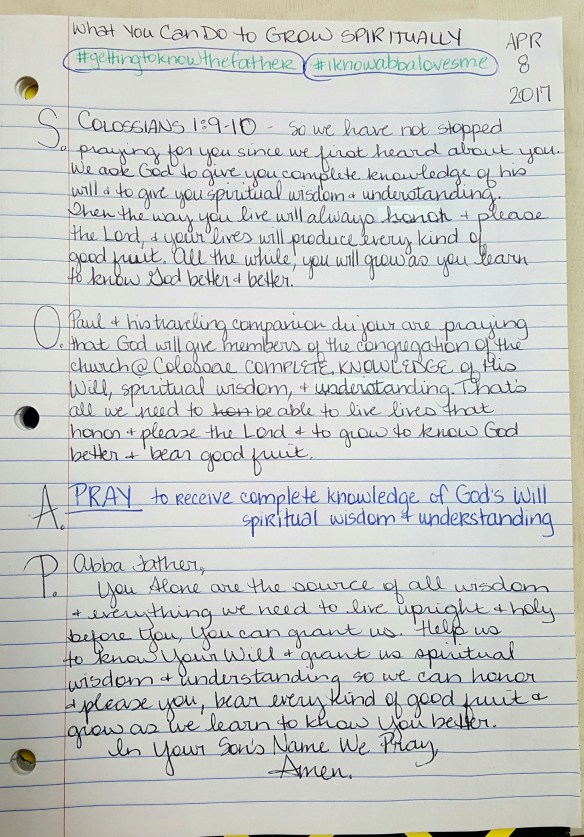 What You Can Do to GROW SPIRITUALLY
#gettingtoknowthefather #iknowabbalovesme
APR
8
2017
S. COLOSSIANS 1:9-10 - So we have not stopped
praying for you since we first heard about you.
We ask God to give you complete knowledge of his
will & to give you spiritual wisdom + understanding.
Then the way you live will always honor + please
the Lord, & your lives will produce every kind of
good fruit. All the while, you will grow as you learn
to know God better + better.
O. Paul + his traveling companion du jour are praying
that God will give members of the congregation of the
church @ Colossae COMPLETE KNOWLEDGE of His
Will, spiritual wisdom, + understanding. That's
all we need to be able to live lives that
honor + please the Lord + to grow to know God
better + bear good fruit.
A. PRAY to receive complete knowledge of God's Will
spiritual wisdom & understanding
P. Abba Father,
You Alone are the source of all wisdom
+ everything we need to live upright + holy
before You, You can grant us. Help us
to know Your Will + grant us spiritual
wisdom + understanding so we can honor
+ please you, bear every kind of good fruit &
grow as we learn to know You better.
In Your Son's Name We Pray,
Amen.